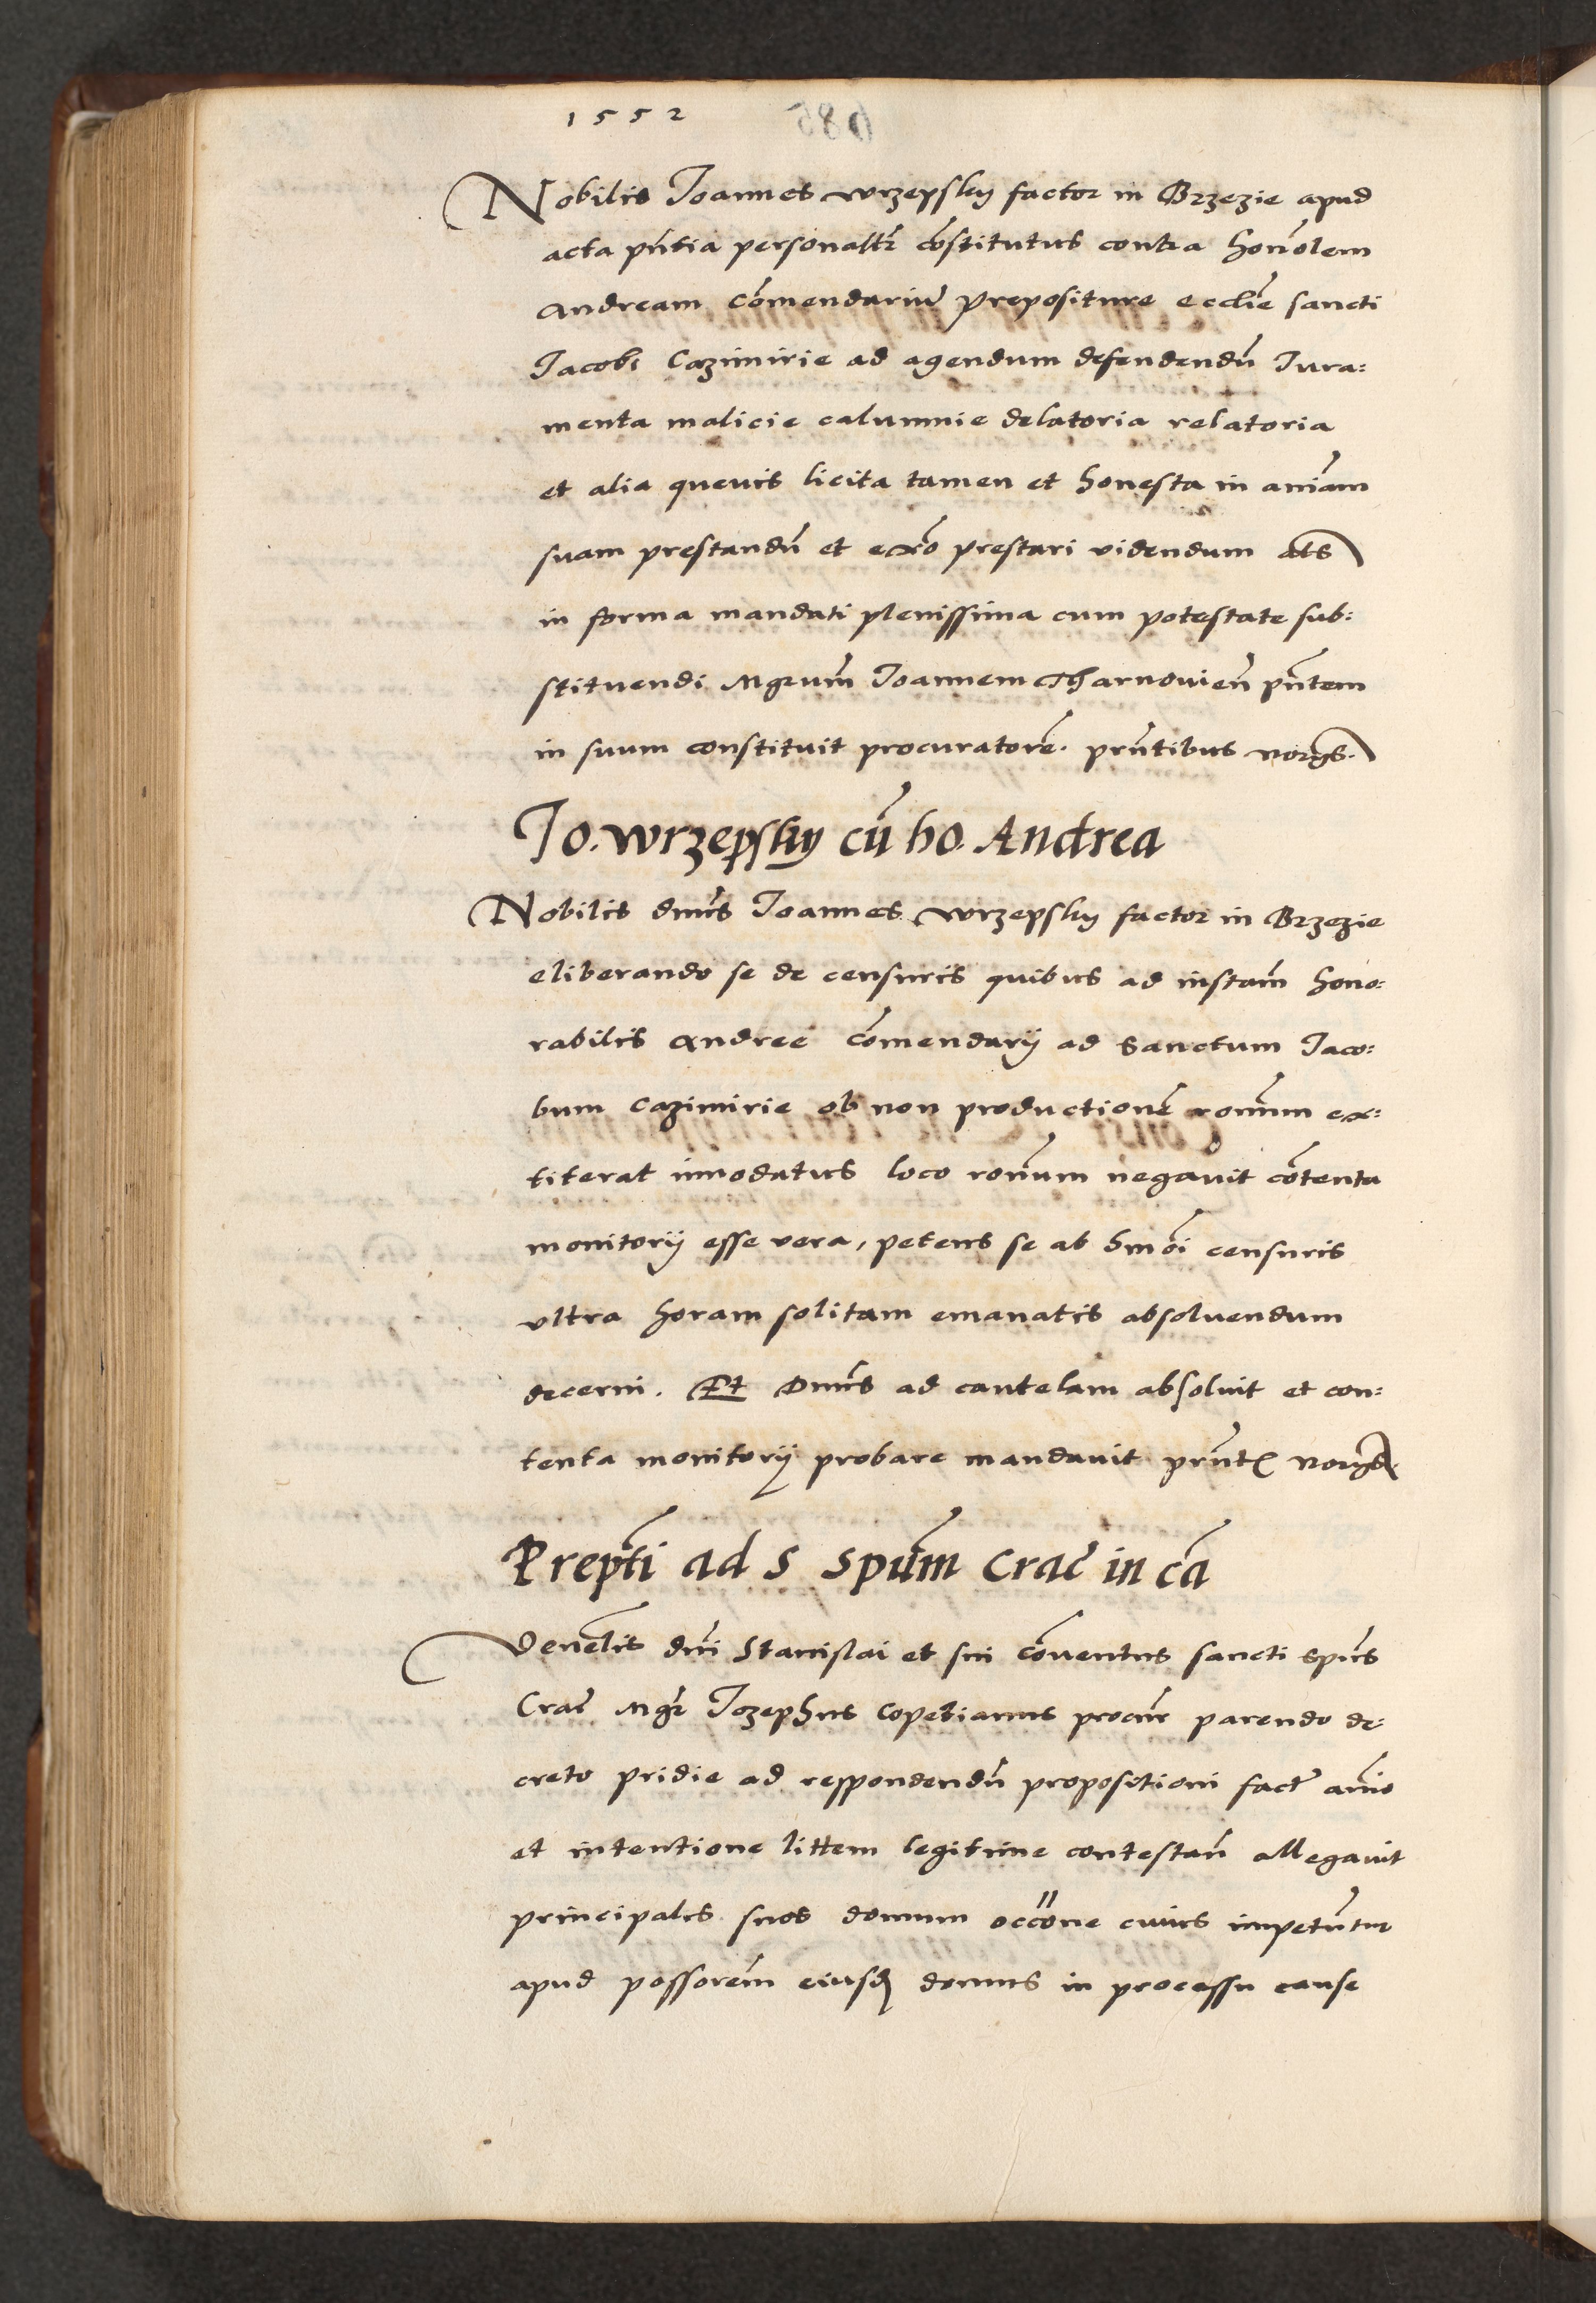 1552
Nobilis Joannes wrzepsky factor in Brzezie apud
acta pn̄tia personaltr̄ cōstitutus contra honōlem
Andream Cōmendariū prepositure eccl̄ie sancti
Jacobi Cazimirie ad agendum defendendū Jura:
menta malicie calumnie delatoria relatoria
et alia quevis licita tamen et honesta in aniām
suam prestandū et exº prestari videndum als
in forma mandati plenissima cum potestate sub:
stituendi Mgrum̄ Joannem Tharnovien̄ pn̄tem
in suum constituit procuratorē. prn̄tibus norgs.
Jo. wrzepsky cū ho. Andrea
Nobilis dn̄us Joannes wrzepsky factor in Brzezie
eliberando se de censuris quibus ad instam̄ hono:
rabilis Andree Cōmendarij ad sanctum Jaco:
bum Cazimirie ob non productionē ronūm ex:
titerat innodatus loco ronūm negavit cōtenta
monitorij esse vera, petens se ab hmōi censuris
ultra horam solitam emanatis absolvendum
decerni. Et Dn̄us ad cautelam absolvit et con:
tenta monitorij probare mandavit prn̄t norgs
Prepti ad S Spūm Crac̄ in cā
Venelis dn̄i Stanislai et sui Cōventus sancti spūs
Crac̄ Mgr̄ Jozephus Copetianus procur̄ parendo de:
creto pridie ad respondendū propositioni fact̄ anīo
et intentione littem legitime contestan̄ allegavit
principales suos domum occōne cuius impetūtur
apud possorēm eiusd domus in processu cause